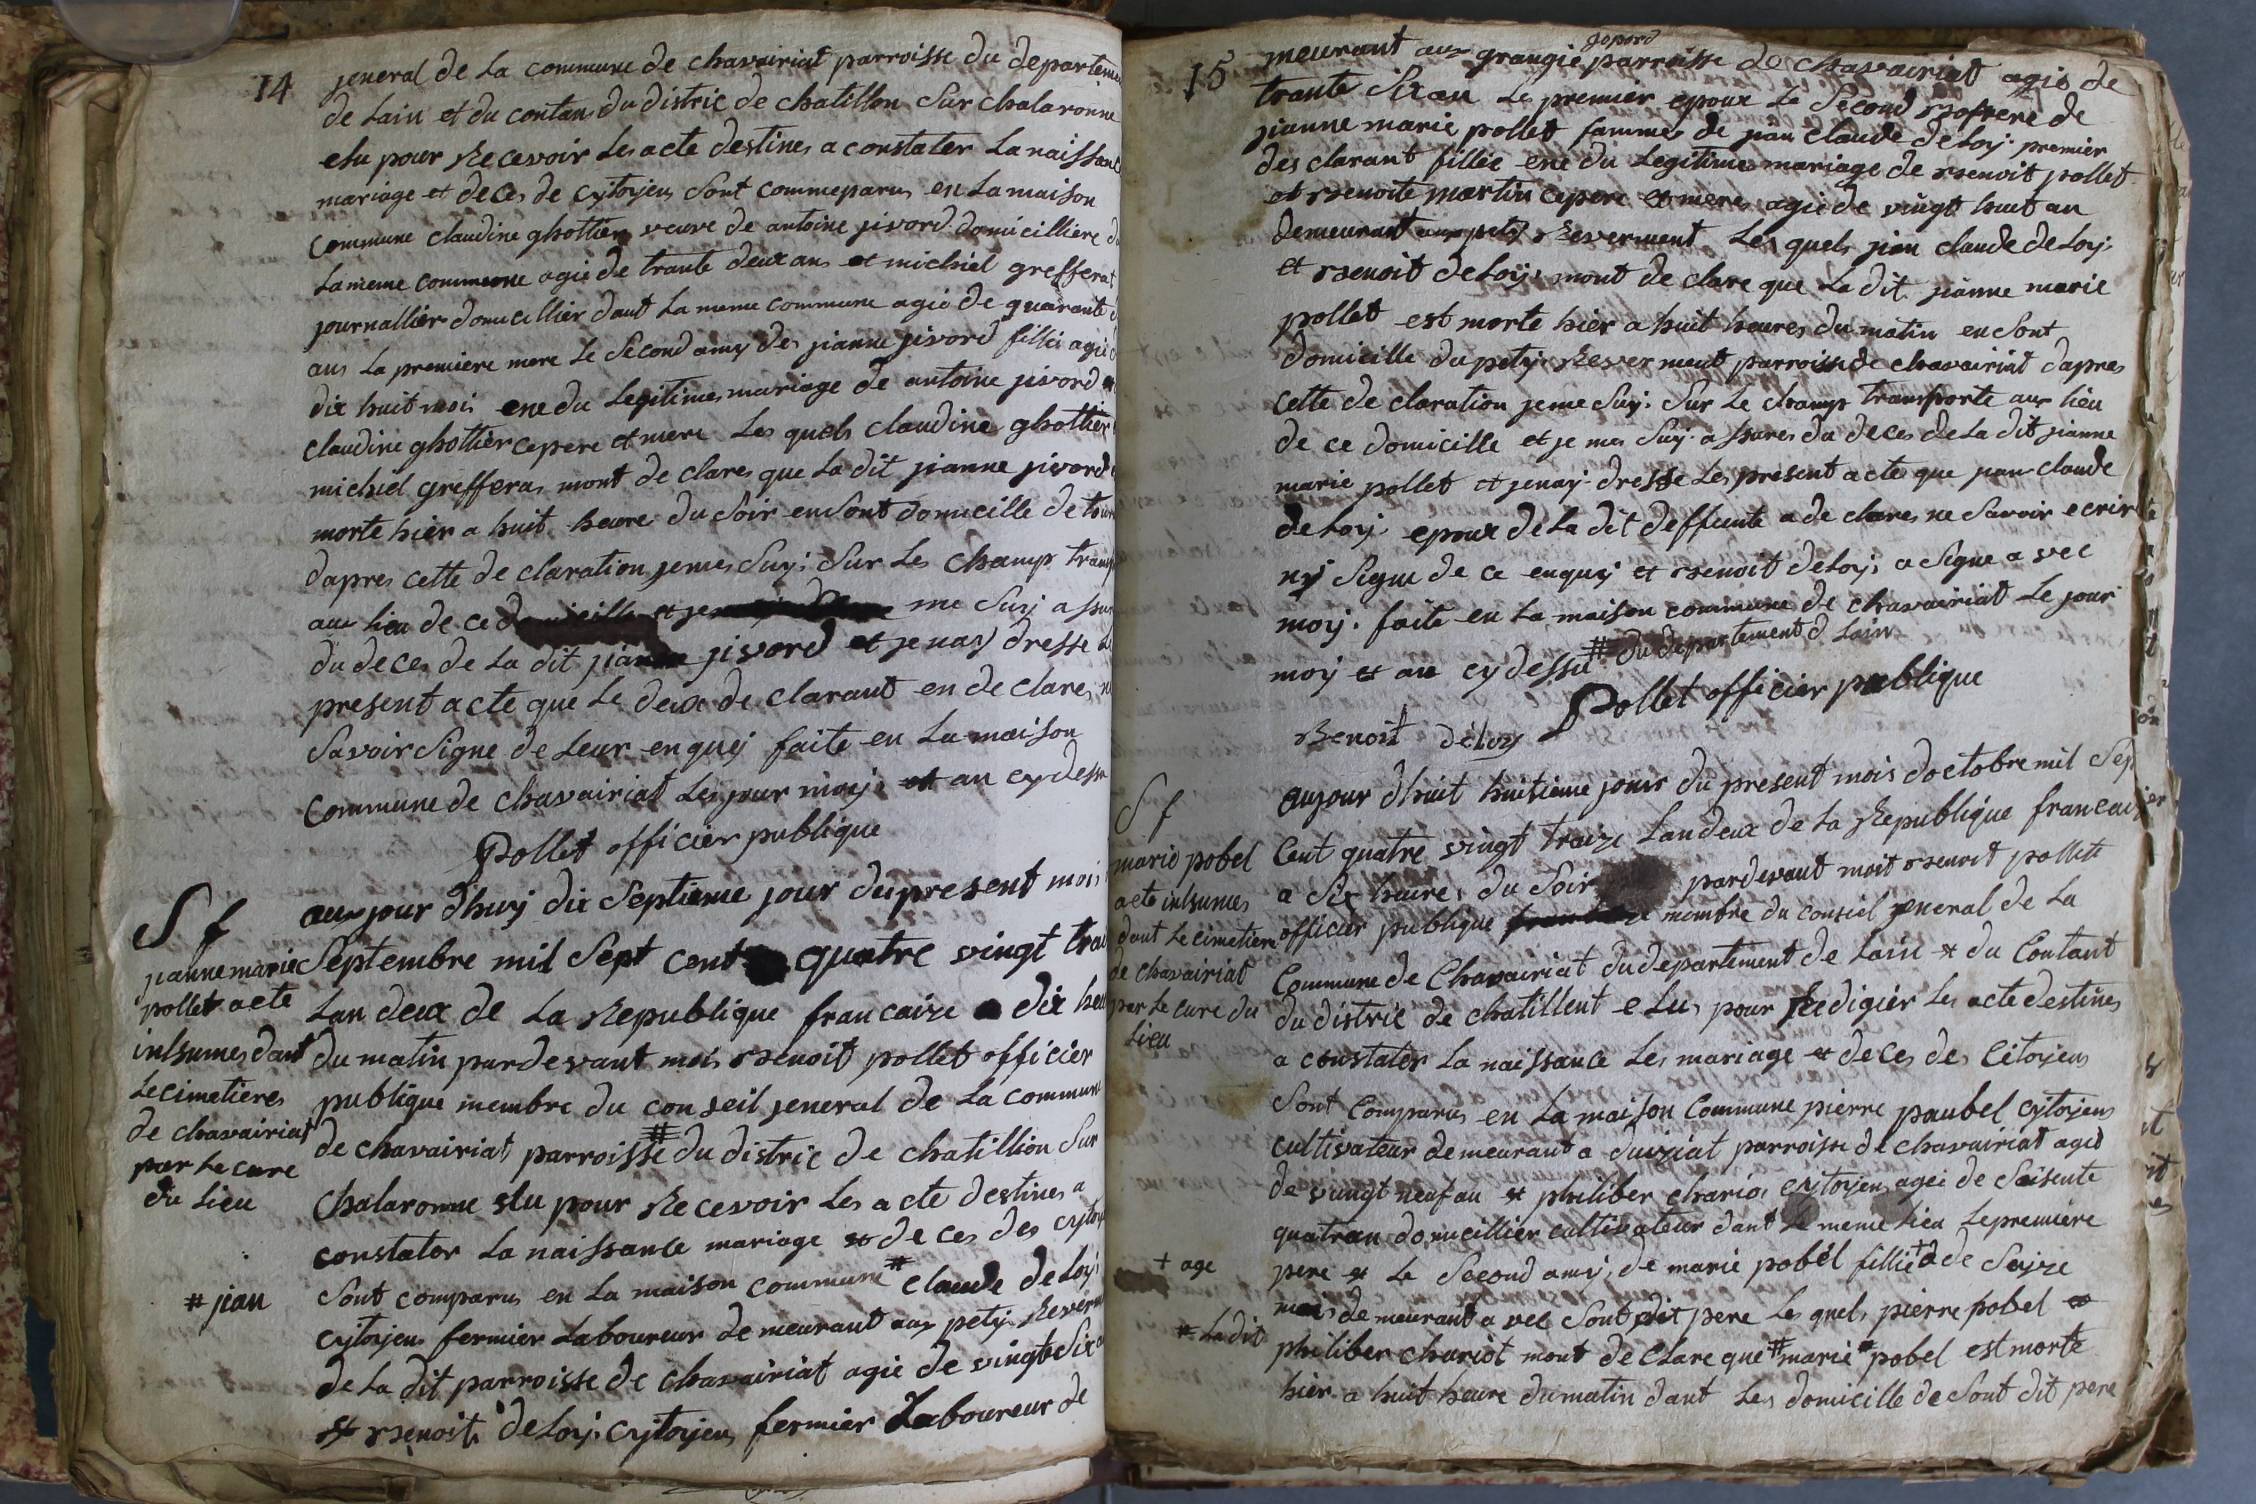 14
jeneral de La commune de chavairiat parroisse du departeme
de Lain et du contan du distric de chatillon Sur chalaronne
elu pour Recevoir Les acte destines a constater La naissanc
mariage et deces de cytoyen Sont commeparus en La maison
commune claudine ghottier veuve de antoine jivord domicilliere d
La meme commune agie de trante deux ans et michiel grefferat
journallier domicillier dant La meme commune agie de quarante
ans La premiere mere Le Second amy de jianne jivord fillie agie
dix huit mois ene du Legitimes mariage de antoine jivord et
claudine ghottier cepere et mere Les quels claudine ghottier
michiel grefferas mont de clares que La dit jianne jivord
morte hier a huit heure du Soir en Sont domicille de tour
dapres cette de claration jemes Suy Sur Les champ transp
aux lieu de ce domicille et je me Suy assur
du deces de La dit jianne jivord et jenay dresse Le
present acte que Le deux de clarant en de clares ne
Savoir Signe de Leur enquej faite en La maison
commune de chavairiat Les jour moy et an cy dessu
Pollet officier publique
S f
jiannemarie
pollet acte
inhumes dant
Lecimetieres
de chavairiat
par Le cure
du Lieu
# jian
aux jour dhuy dix Septieme jour dupresent mois
Septembre mil Sept cent quatre vingt trai
Lan deux de La Republique francaize a dix heu
du matin pardevant moi Benoit pollet officier
publique membre du conseil jeneral de La commune
de chavairiat parroisse # du distric de chatillion Sur
Chalaronne elu pour Recevoir Les acte destines a
constater La naissance mariage et deces des cytoy
Sont comparus en La maison commune # claude deLoy
cytoyen fermier Laboureur demeurant aux pety Reverm
de La dit parroisse de chavairiat agie de vingt Six
et Benoit deLoy cytoyen fermier Laboureur de
15
jopord
meurant aux grangie parroisse de chavairiat agie de
trante Six an Les premier epoux Le Second Bofrere de
jianne marie pollet fammes de jian claude deLoy premier
des clarant fillie ene du Legitimes mariage de Benoit pollet
et Benoite martin cepere et mere agie de vingt huit an
demeurant aux pety Reverment Les quels jian claude deLoy
et Benoit deLoy mont de clare que La dit jianne marie
pollet est morte hier a huit heures du matin en Sont
domicille du pety Reverment parroisse de chavairiat dapres
cette de claration jeme Suy Sur Le champ transporte aux lieu
de ce domicille et je me Suy assures du deces de La dit jianne
marie pollet et jenay dresse Les present acte que jean claude
de Loy epoux de La dit deffunte a de clares ne Savoir ecrire
ny Signe de ce enquej et Benoit deLoy a Signe a vec
moy faite en La maison commune de chavairiat Le jour
moy et an cy dessu # du departement d Lain
Pollet officier publique
Benoit deloy
S f
marie pobel
acte inhumes
dant Le cimetiere
de chavairiat
par Le cure du
Lieu
+ age
# La dit
aujour dhuit huitieme jour du present mois doctobre mil Sep
Cent quatre vingt traize Landeux de La Republique francai
a Six heure du Soir pardevant moit Benoit pollet
officier publique membre du consiel jeneral de La
Commune de Chavairiat du departement de Lain et du Contant
du distric de chatillent elus pour Redigier Les acte destines
a constater La naissance Les mariage et deces des Citoyen
Sont Comparus en La maison Commune pierre paubel cytoyen
cultivateur demeurant a Suiziat parroisse de chavairiat aged
de vingt neuf an et philiber chario cytoyen agei de Soisente
quatran domicillier cultivateur dant Le meme Lieu Lepremiere
pere et Le Second amy de marie pobel fillie + de Seize
mois demeurant a vec Sont dit pere Les quels pierre pobel et
philiber chariot mont de clare que # marie pobel est morte
hier a huit heure du matin dant Les domicille de Sont dit pere